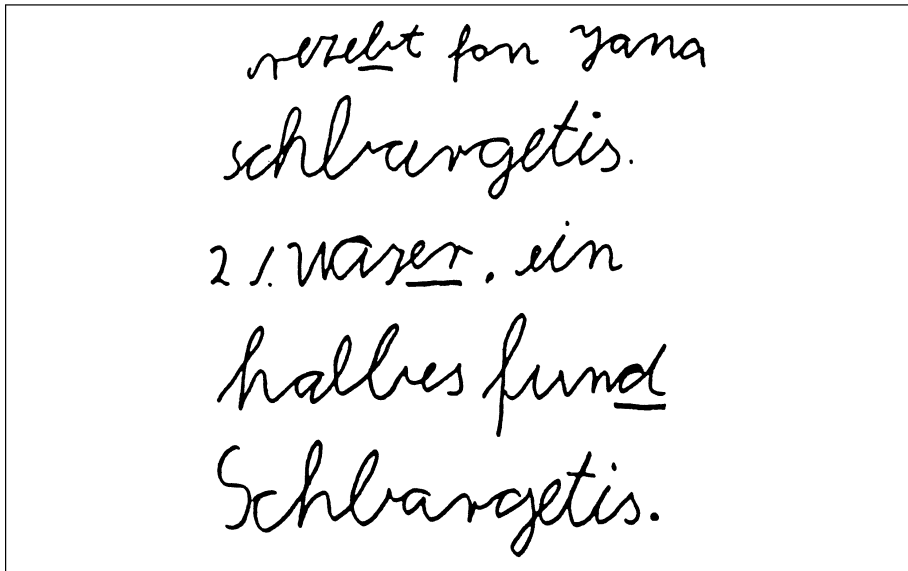 rezebt fon yana
schbargetis.
2 l. Waser. ein
halbes fund
Schbargetis.